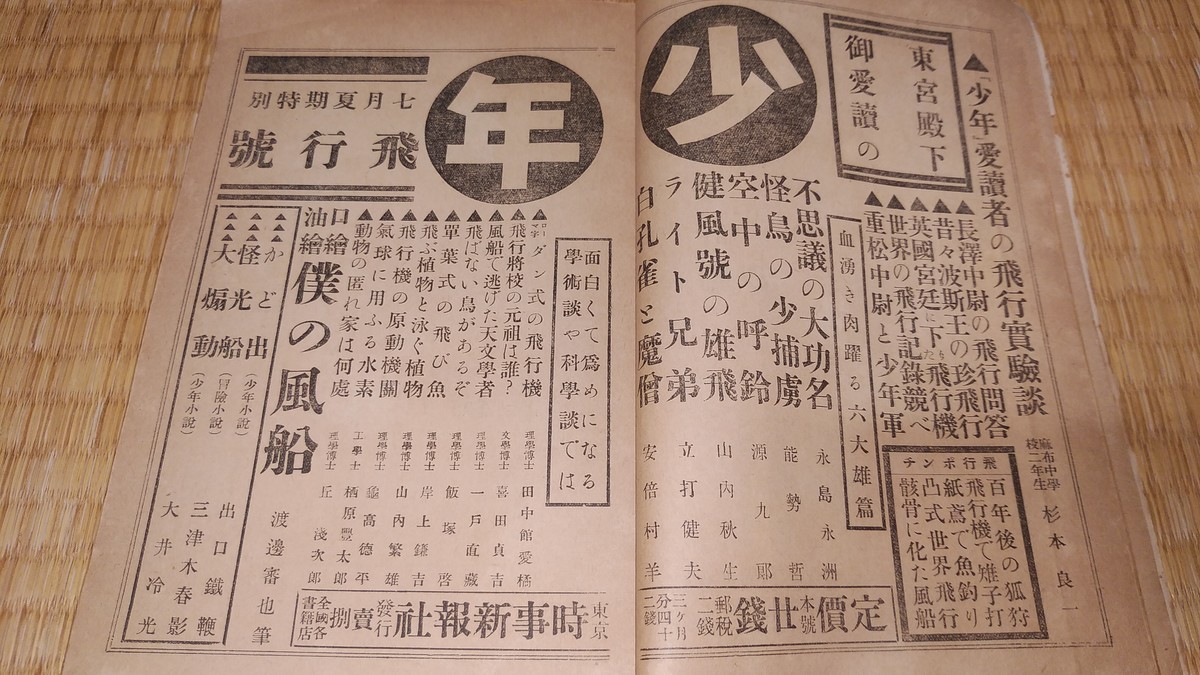 ▲「少年」愛讀者の飛行實驗談
麻布中學
校二年生
杉本良一
東宮殿下
御愛讀の
少年
▲長澤中尉の飛行問答
▲昔々波斯王の珍飛行
▲英國宮廷に下りた飛行機
▲世界の飛行記錄競べ
▲重松中尉と少年軍
飛行ポンチ
百年後の狐狩
飛行機で雉子打
紙鳶で魚釣り
凸式世界飛行
骸骨に化た風船
血湧き肉躍る六大雄篇
不思議の大功名 永島永洲
怪鳥の少捕虜 能勢哲
空中の呼鈴 源九郎
健風號の雄飛 山內秋生
ライト兄弟 立打健夫
白孔雀と魔僧 安倍村羊
定價
本號
廿錢
郵稅
二錢
三ヶ月
分四十
二錢
七月夏期特別
飛行號
面白くて爲めになる
學術談や科學談では
▲ローマ字
ダン式の飛行機 理學博士 田中館愛橘
▲飛行將校の元祖は誰? 文學博士 喜田貞吉
▲風船で逃げた天文學者 理學博士 一戶直藏
▲飛ばない鳥があるぞ 理學博士 飯塚啓
▲單葉式の飛び魚 理學博士 岸上鎌吉
▲飛ぶ植物と泳ぐ植物 理學博士 山內繁雄
▲飛行機の原動機關 工學士 栖原豐太郎
▲氣球に用ふる水素 龜高德平
▲動物の匿れ家は何處 理學博士 丘淺次郎
口繪
油繪
僕の風船 渡邊審也筆
▲▲▲かど出(少年小說) 出口鐵鞭
▲▲▲怪光船(冒險小說) 三津木春影
▲▲▲大煽動(少年小說) 大井冷光
東京
時事新報社
發行
賣捌
全國各
書籍店